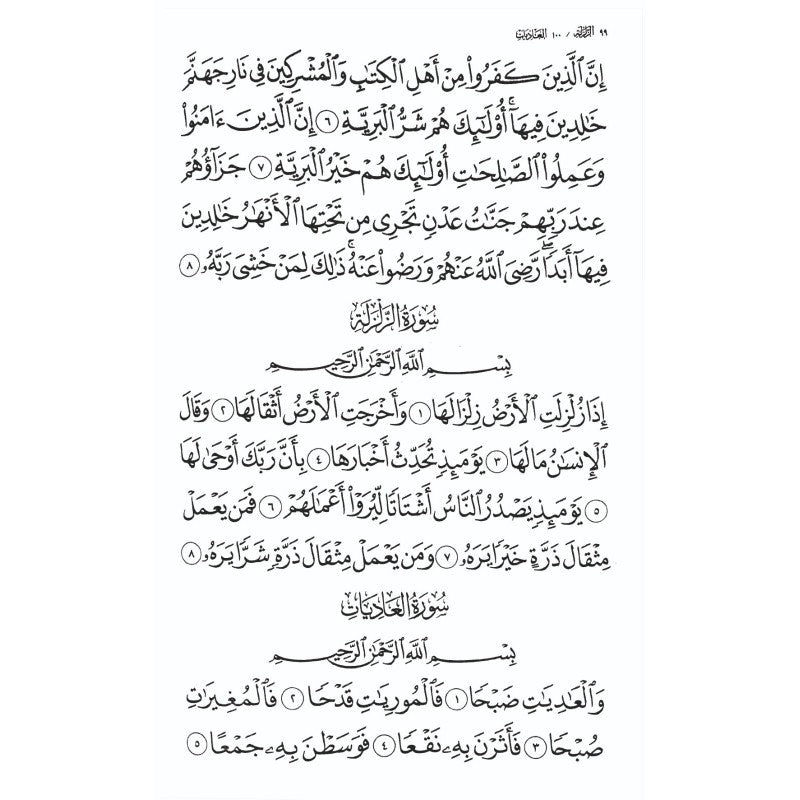 ٩٩ الزلزلة / ١٠٠ العاديات
إِنَّ ٱلَّذِينَ كَفَرُوا۟ مِنْ أَهْلِ ٱلْكِتَٰبِ وَٱلْمُشْرِكِينَ فِى نَارِ جَهَنَّمَ
خَٰلِدِينَ فِيهَآۚ أُو۟لَٰٓئِكَ هُمْ شَرُّ ٱلْبَرِيَّةِ ٦ إِنَّ ٱلَّذِينَ ءَامَنُوا۟
وَعَمِلُوا۟ ٱلصَّٰلِحَٰتِ أُو۟لَٰٓئِكَ هُمْ خَيْرُ ٱلْبَرِيَّةِ ٧ جَزَآؤُهُمْ
عِندَ رَبِّهِمْ جَنَّٰتُ عَدْنٍ تَجْرِى مِن تَحْتِهَا ٱلْأَنْهَٰرُ خَٰلِدِينَ
فِيهَآ أَبَدًاۖ رَّضِىَ ٱللَّهُ عَنْهُمْ وَرَضُوا۟ عَنْهُۚ ذَٰلِكَ لِمَنْ خَشِىَ رَبَّهُۥ ٨
سُورَةُ الزَّلْزَلَةِ
بِسْمِ ٱللَّهِ ٱلرَّحْمَٰنِ ٱلرَّحِيمِ
إِذَا زُلْزِلَتِ ٱلْأَرْضُ زِلْزَالَهَا ١ وَأَخْرَجَتِ ٱلْأَرْضُ أَثْقَالَهَا ٢ وَقَالَ
ٱلْإِنسَٰنُ مَا لَهَا ٣ يَوْمَئِذٍ تُحَدِّثُ أَخْبَارَهَا ٤ بِأَنَّ رَبَّكَ أَوْحَىٰ لَهَا
٥ يَوْمَئِذٍ يَصْدُرُ ٱلنَّاسُ أَشْتَاتًا لِّيُرَوْا۟ أَعْمَٰلَهُمْ ٦ فَمَن يَعْمَلْ
مِثْقَالَ ذَرَّةٍ خَيْرًا يَرَهُۥ ٧ وَمَن يَعْمَلْ مِثْقَالَ ذَرَّةٍ شَرًّا يَرَهُۥ ٨
سُورَةُ العَادِيَاتِ
بِسْمِ ٱللَّهِ ٱلرَّحْمَٰنِ ٱلرَّحِيمِ
وَٱلْعَٰدِيَٰتِ ضَبْحًا ١ فَٱلْمُورِيَٰتِ قَدْحًا ٢ فَٱلْمُغِيرَٰتِ
صُبْحًا ٣ فَأَثَرْنَ بِهِۦ نَقْعًا ٤ فَوَسَطْنَ بِهِۦ جَمْعًا ٥